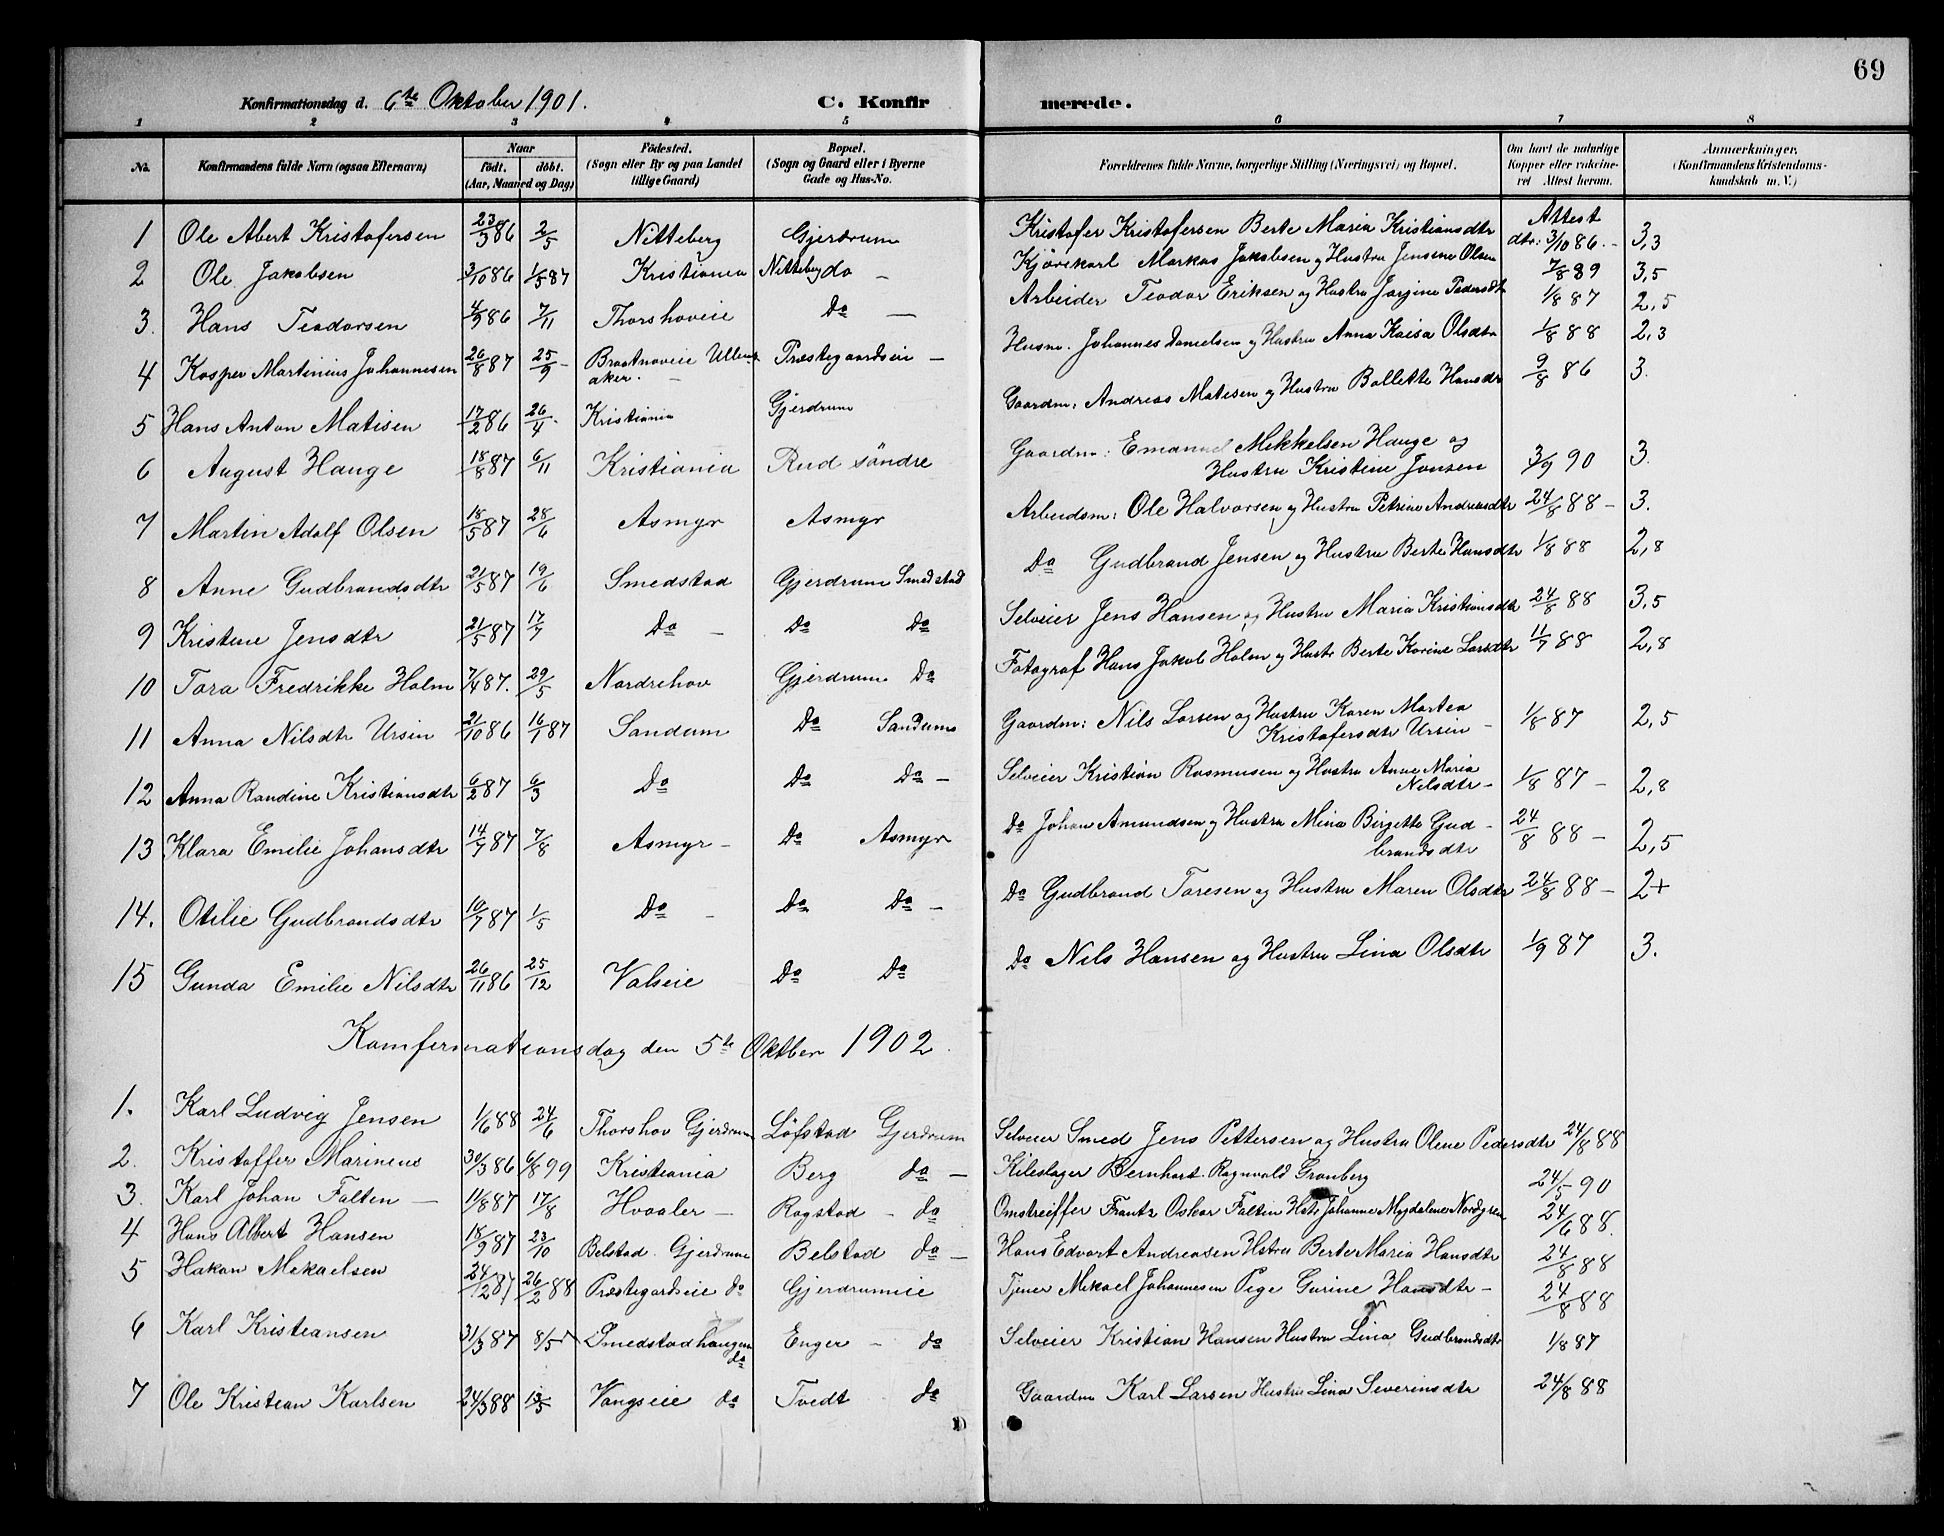 69
Konfirmationsdag d. 6te Oktober 1901. C. Konfirmerede.
1 2 3 4 5 6 7 8
No. Konfirmandens fulde Navn (ogsaa Efternavn) Naar födt. döbt. (Aar, Maaned og Dag) Födested. (Sogn eller By og paa Landet tillige Gaard) Bopæl. (Sogn og Gaard eller i Byerne Gade og Hus-No. Forældrenes fulde Navne, borgerlige Stilling (Næringsvei) og Bopæl. Om havt de naturlige Kopper eller vaccineret Attest herom. Anmærkninger. (Konfirmandens Kristendomskundskab m. V.)
1 Ole Abert Kristofersen 23/3 86 2/5 Nitteberg Gjerdrum Kristofer Kristofersen Berte Maria Kristiansdtr Attest dtr: 3/10 86. - 3,3
2 Ole Jakobsen 3/10 86 1/5 87 Kristiania Nitteberg do - Kjörekarl Markus Jakobsen og Hustru Jensine Olsen 7/8 89 3,5
3. Hans Teodorsen 4/9 86 7/11 Thorshoveie Do - Arbeider Teodor Eriksen og Hustru Jorgine Pedersdtr 1/8 87 2,5
4 Kasper Martinius Johannesen 26/8 87 25/9 - Braatnoveie Ullensaker. - Præstegaardseie - Husm. Johannes Danielsen og Hustru Anna Kaisa Olsdtr 1/8 88 2,3
5 Hans Anton Matisen 17/2 86 26/4 - Kristiania Gjerdrum Gaardm: Andreas Matisen og Hustru Bollette Hansdtr 9/8 86 3.
6 August Hauge 18/8 87 6/11 Kristiania Rud söndre Gaardm: Emanuel Mikkelsen Hauge og Hustru Kristine Jonsen 3/9 90 3.
7 Martin Adolf Olsen 18/5 87 28/6 Asmyr Asmyr Arbeidsm: Ole Halvorsen og Hustru Petrine Andreasdtr 24/8 88 - 3.
8 Anne Gudbrandsdtr 21/5 87 19/6 Smedstad Gjerdrum Smedstad Do Gudbrand Jensen og Hustru Berte Hansdtr 1/8 88 2,8
9 Kristine Jensdtr 21/5 87 17/7 Do - Do Do Selveier Jens Hansen og Hustru Maria Kristiansdtr 24/8 88 3,5
10 Tora Fredrikke Holm 7/4 87. 29/5 Nordrehov Gjerdrum Do Fotograf Hans Jakob Holm og Hustr Berte Karine Larsdtr 11/7 88 2,8
11 Anna Nilsdtr Ursin 21/10 86 16/1 87 Sandum Do Sandum Gaardm: Nils Larsen og Hustru Karen Martea Kristofersdtr Ursin - 1/8 87 2,5
12 Anna Randine Kristiansdtr 6/2 87 6/3 Do Do Do - Selveier Kristian Rasmusen og Hustru Anne Maria Nilsdtr - 1/8 87 - 2,8
13 Klara Emilie Johansdtr 14/7 87 7/8 Asmyr - Do Asmyr Do Johan Amundsen og Hustru Mina Birgette Gudbrandsdtr 24/8 88 - 2,5
14. Otilie Gudbrandsdtr 10/7 87 1/5 Do - Do Do - Do Gudbrand Toresen og Hustru Maren Olsdtr 24/8 88 - 2+
15 Gunda Emilie Nilsdtr 26/11 86 25/12 Valseie Do Do Do Nils Hansen og Hustru Lina Olsdtr 1/9 87 3.
Komfermationsdag den 5te Oktber 1902.
1. Karl Ludvig Jensen 1/6 88 24/6 Thorshov Gjerdrum Löfstad Gjerdrum Selveier Smed Jens Pettersen og Hustru Olene Pedersdtr 24/8 88
2. Kristoffer Marineus 30/3 86 6/8 99 Kristiania Berg do - Kileslager Bernhart Ragnvald Granberg 24/5 90
3. Karl Johan Falten - 11/8 87 17/8 Hvaaler - Ragstad - do Omstreiffer Frantz Oskar Faltin Hstr Johanne Magdalene Nordgren 24/6 88.
4 Hans Albert Hansen 18/9 87 23/10 Belstad. Gjerdrum Belstad do - Hans Edvart Andreasen Hstru Berte Maria Hansdtr 24/8 88
5 Hakon Mekaelsen 24/12 87 26/2 88 Præstegardseie do Gjerdrumeie Tjener Mekael Johannesen Pige Gurine Hansdtr - 24/8 88
6 Karl Kristiansen 31/3 87 8/5 Smedstadhaugen do Enger - do Selveier Kristian Hansen Hustru Lina Gudbrandsdtr 1/8 87
7 Ole Kristian Karlsen 24/3 88 13/5 Vangseie do Tvedt do Gaardm Karl Larsen Hustru Lina Severinsdtr 24/8 88